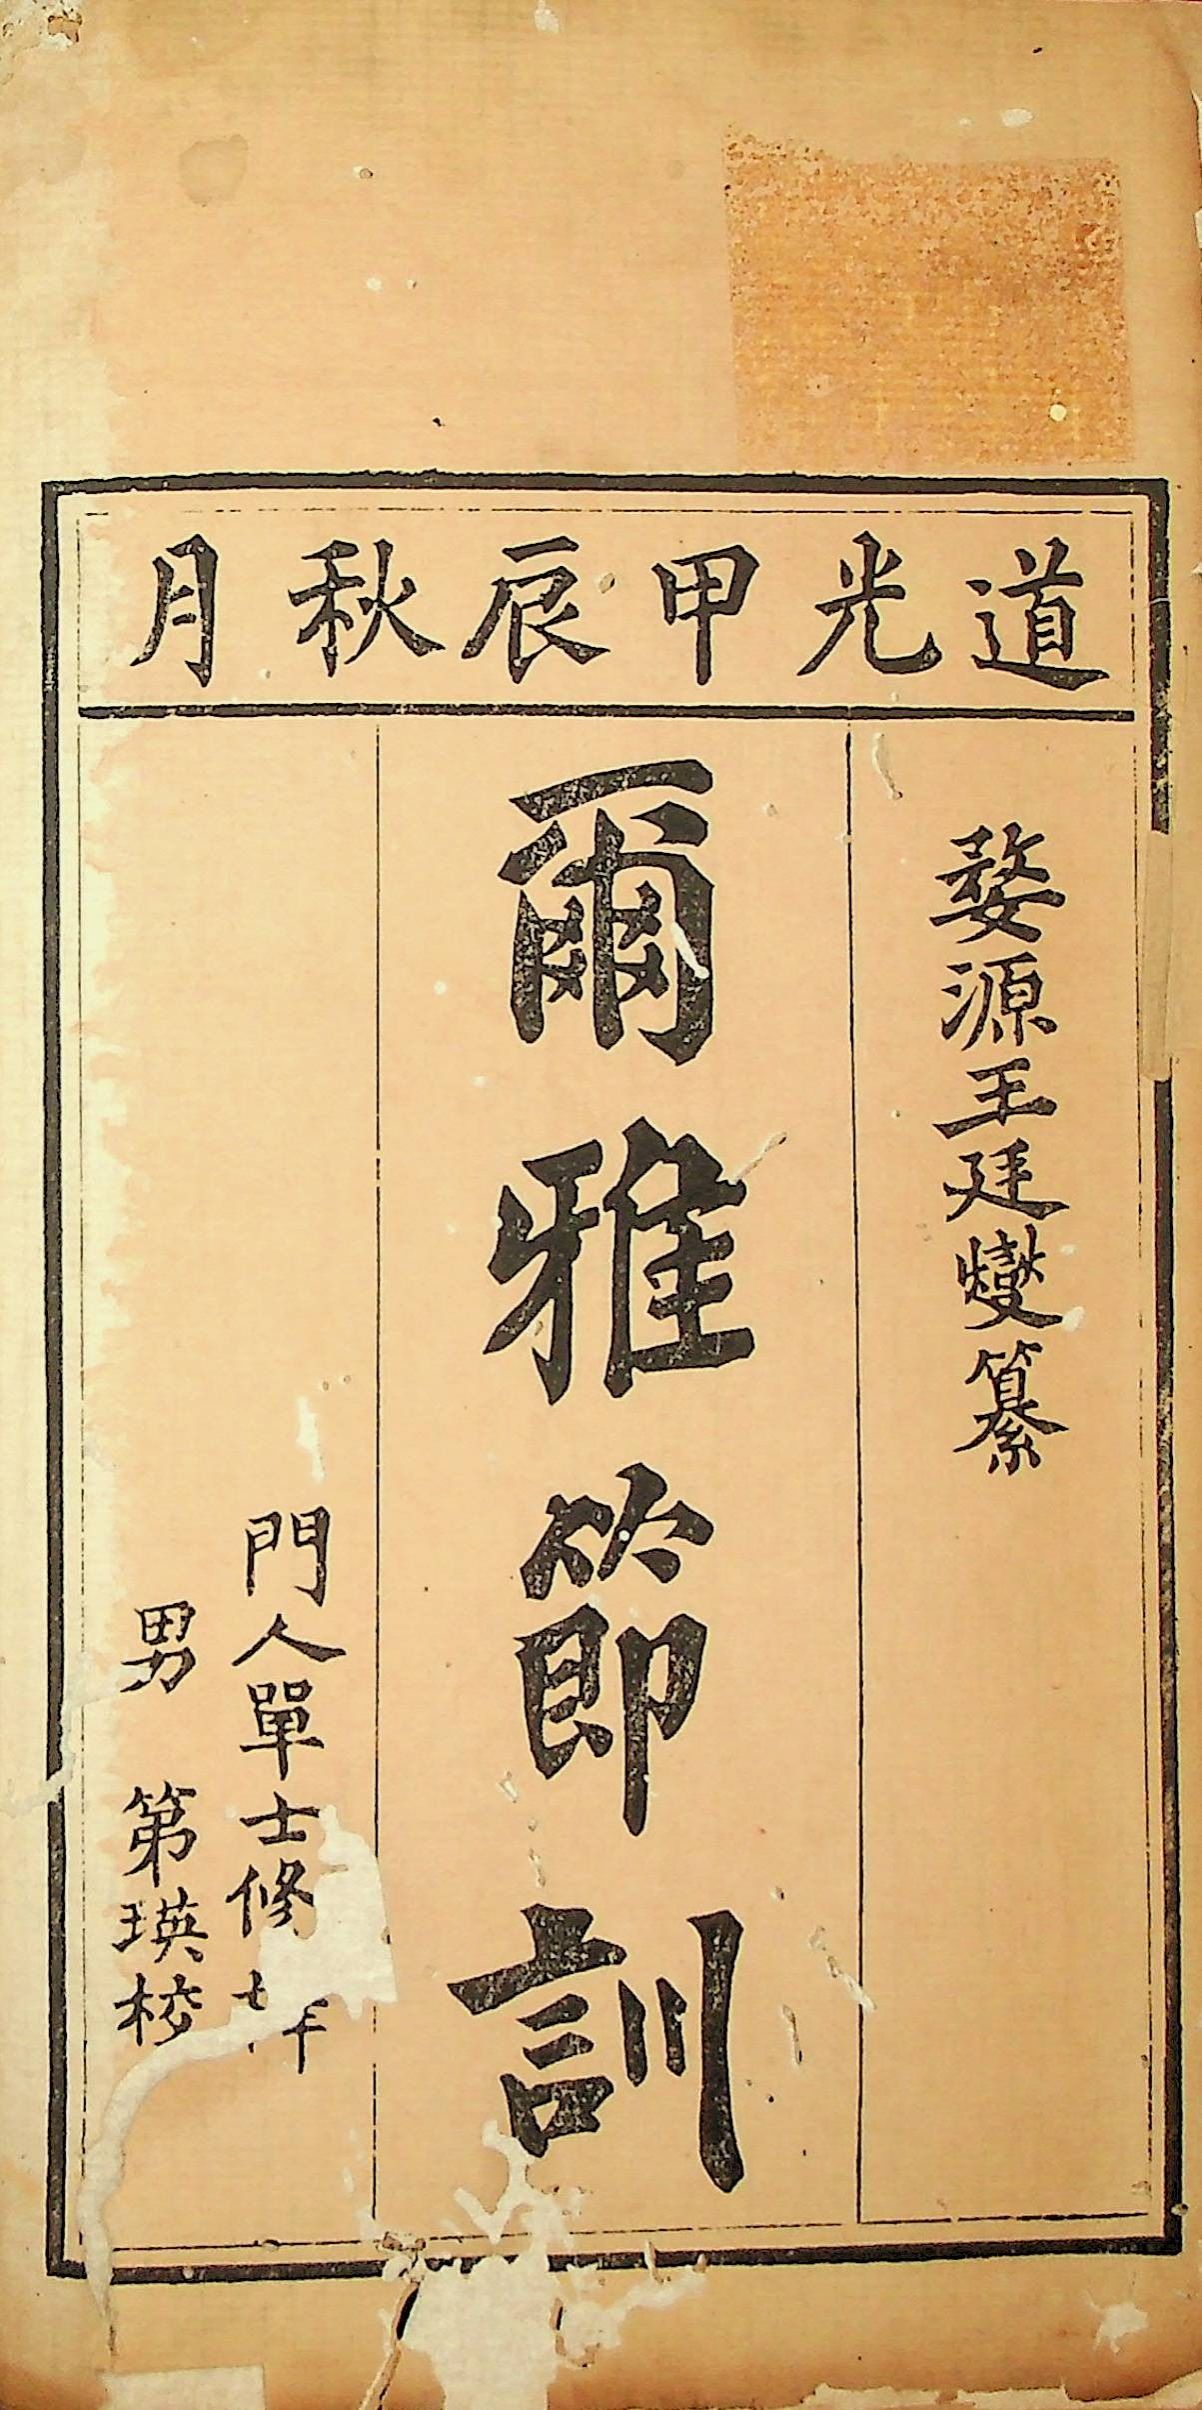 道光甲辰秋月
婺源王廷燮纂
爾雅節訓
門人單士修
男 第瑛校